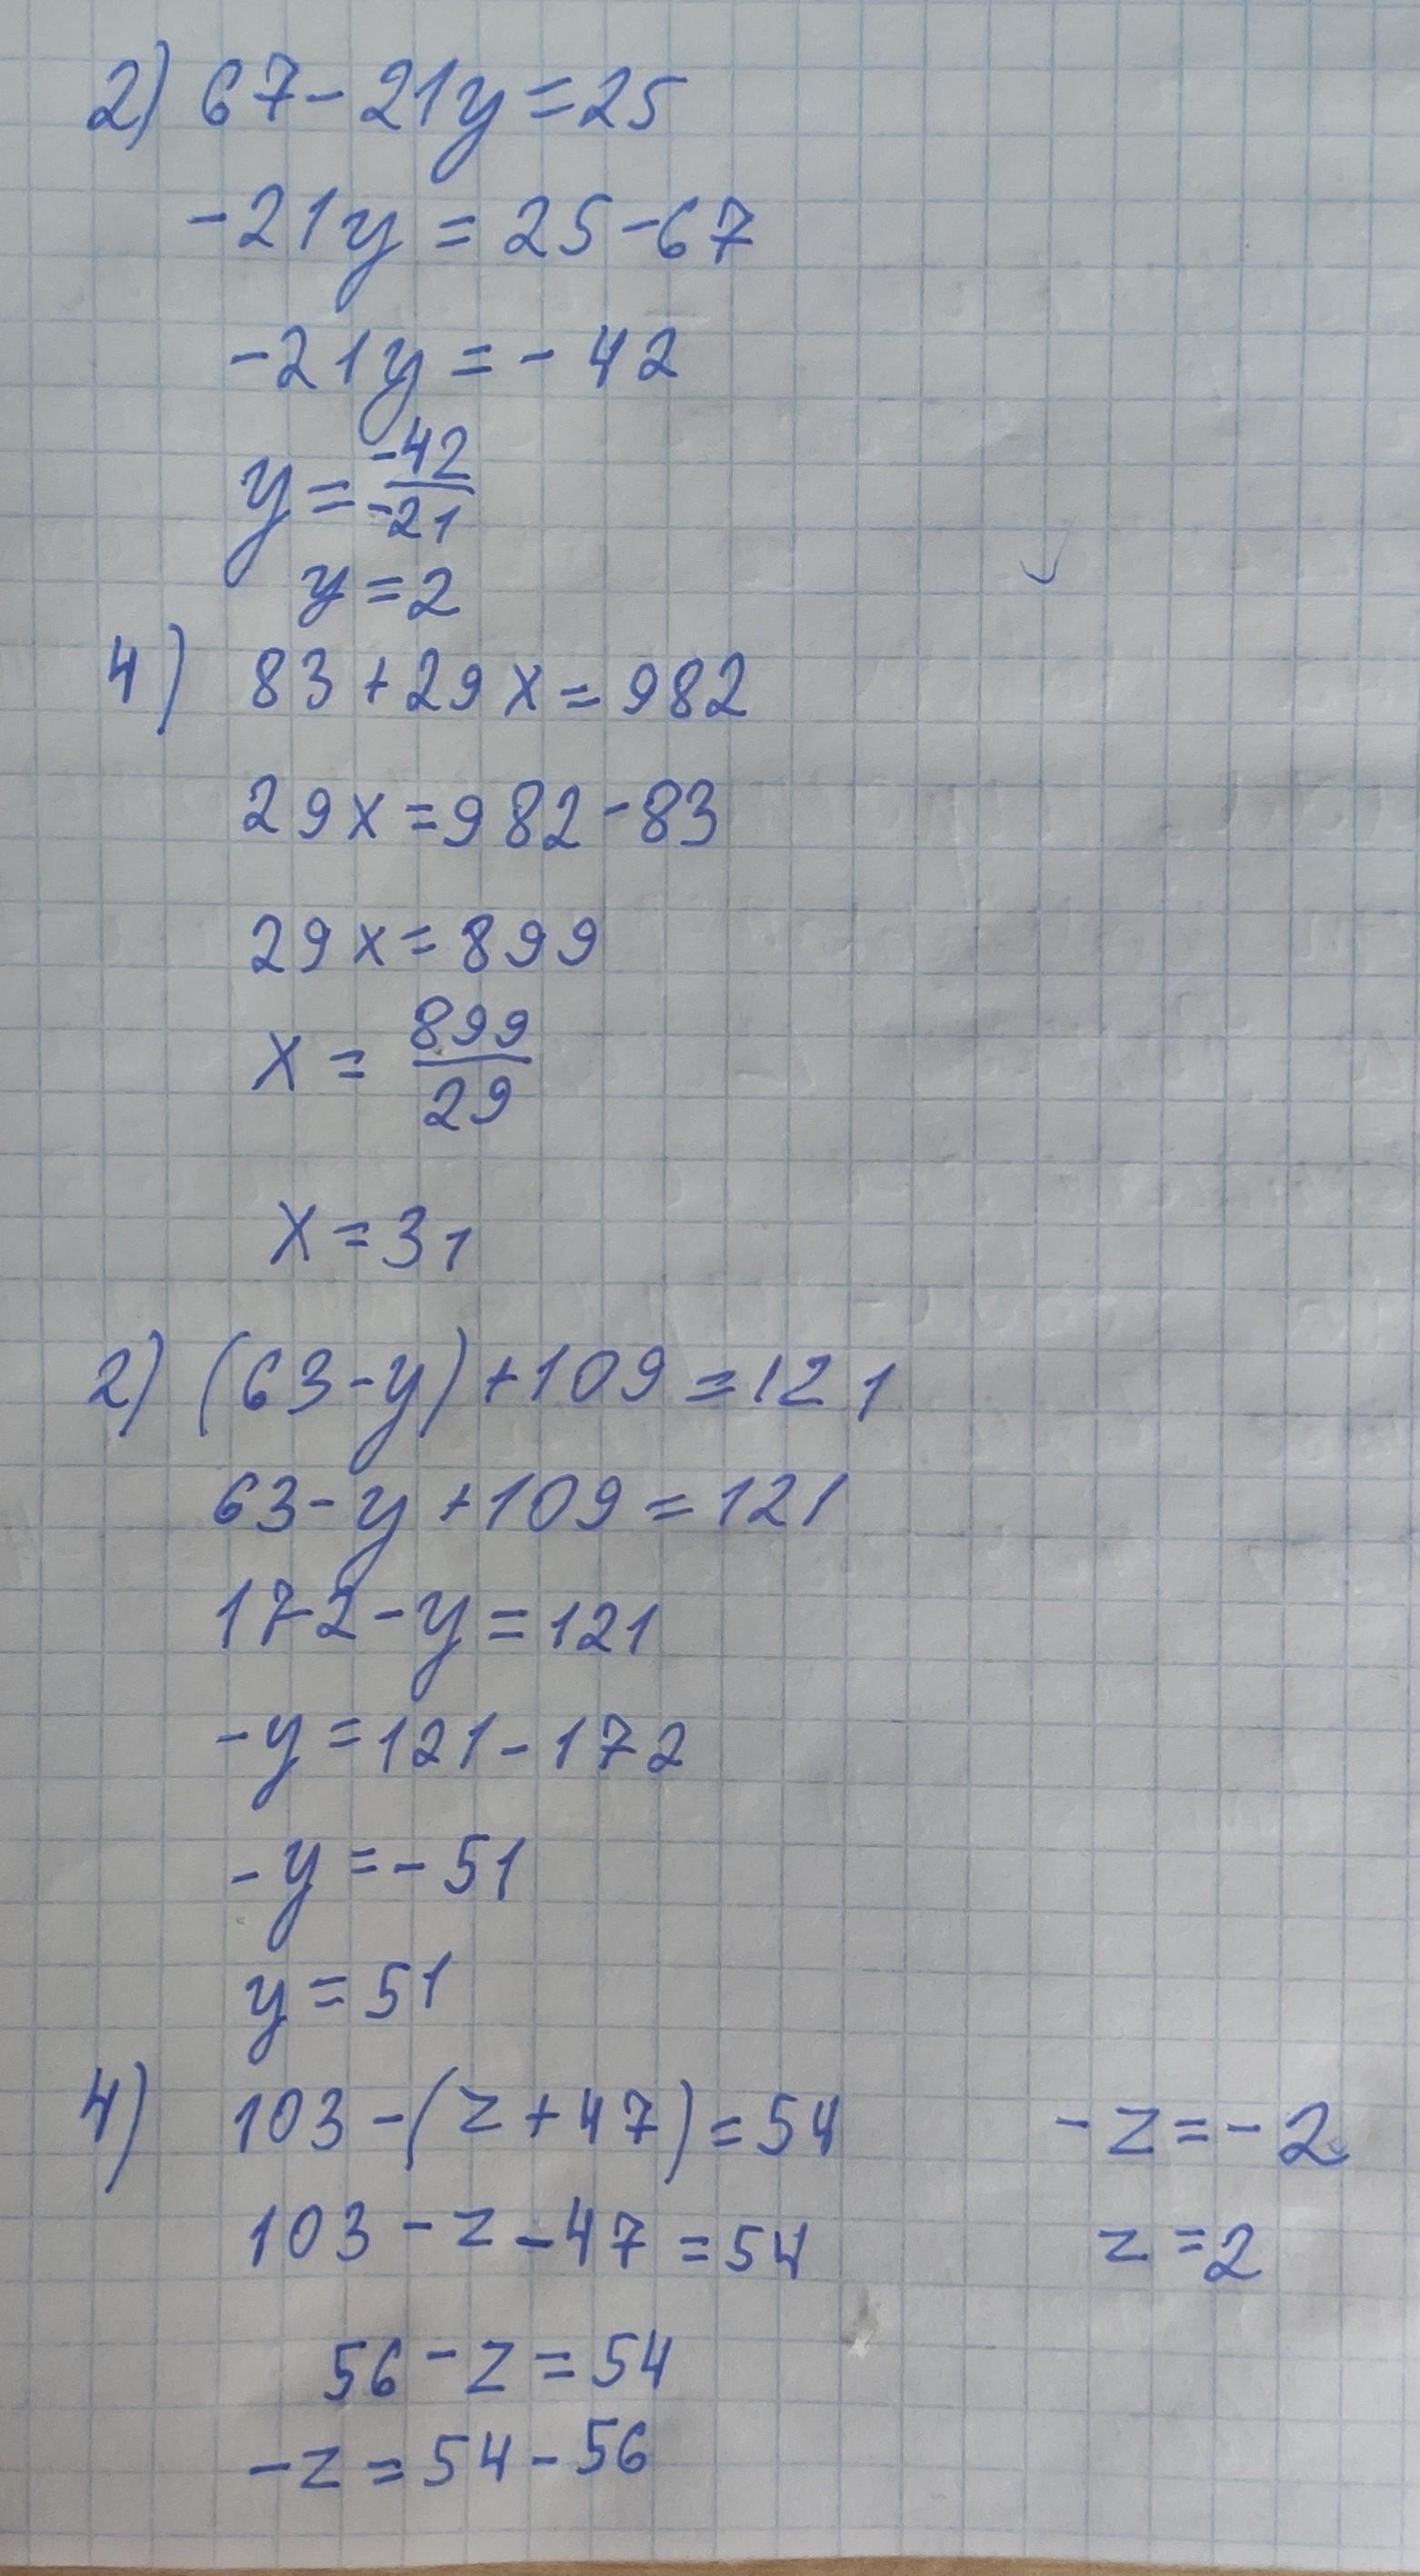 2) 67-21y=25
-21y=25-67
-21y=-42
y=-42/-21
y=2
4) 83+29x=982
29x=982-83
29x=899
x=899/29
x=31
2) (63-y)+109=121
63-y+109=121
172-y=121
-y=121-172
-y=-51
y=51
4) 103-(z+47)=54
103-z-47=54
56-z=54
-z=54-56
-z=-2
z=2